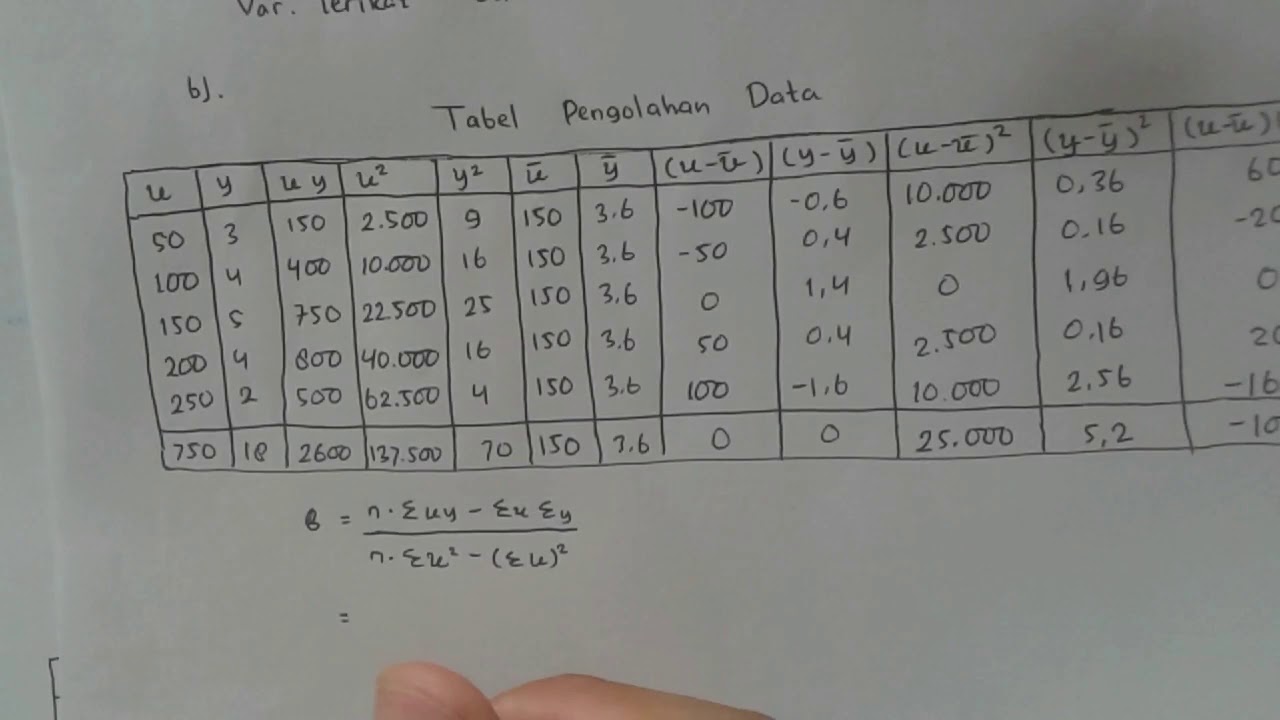 Var. Terikat
b).
Tabel Pengolahan Data
x y xy x² y² x̄ ȳ (x-x̄) (y-ȳ) (x-x̄)² (y-ȳ)² (x-x̄)
50 3 150 2.500 9 150 3.6 -100 -0.6 10.000 0,36 60
100 4 400 10.000 16 150 3.6 -50 0,4 2.500 0.16 -20
150 5 750 22.500 25 150 3.6 0 1,4 0 1,96 0
200 4 800 40.000 16 150 3.6 50 0.4 2.500 0.16 20
250 2 500 62.500 4 150 3.6 100 -1,6 10.000 2,56 -16
750 18 2600 137.500 70 150 3.6 0 0 25.000 5,2 -10
B = n. Σxy - Σx Σy
n. Σx² - (Σx)²
=